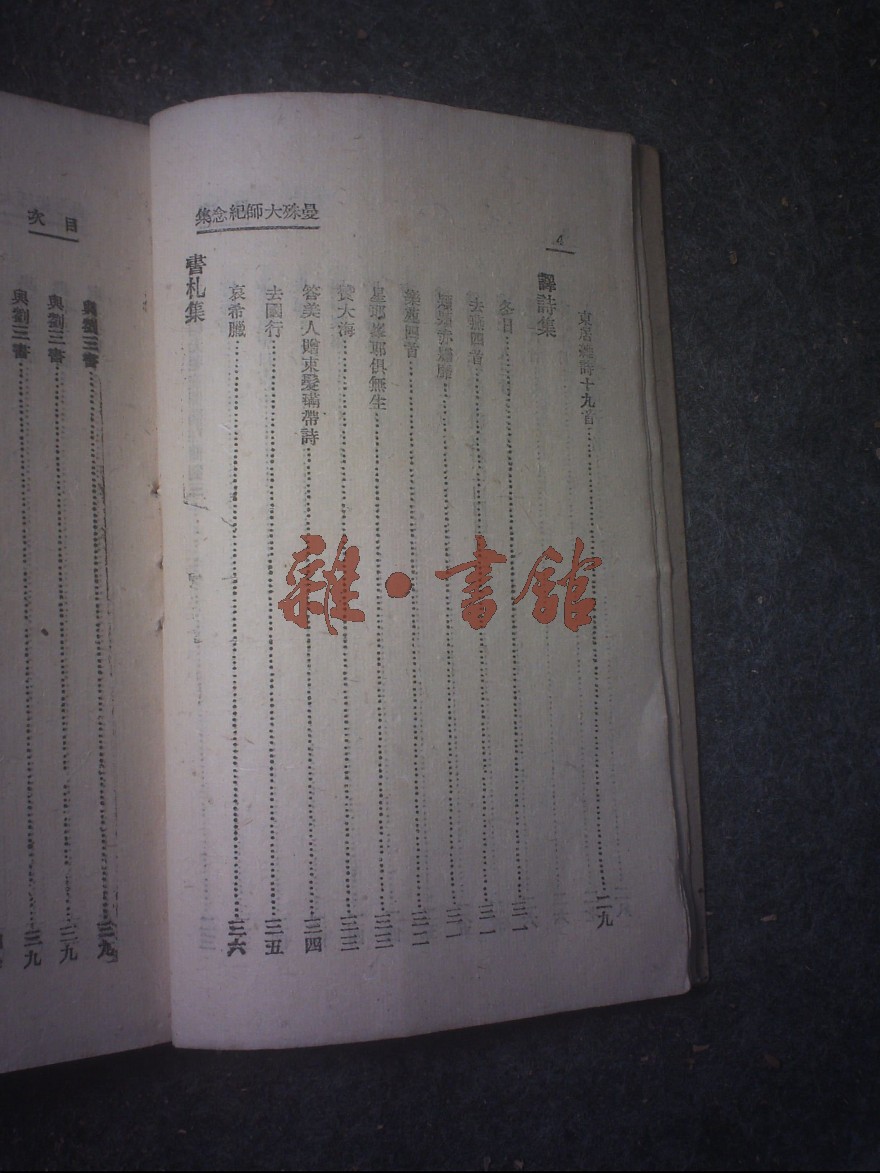 曼殊大師紀念集
4
東居雜詩十九首……二九
譯詩集
冬日……三一
去燕四首……三一
熲熲赤牆靡
樂苑四首……三二
星耶峯耶俱無生……三三
讚大海……三三
答美人贈束髮帶詩……三四
去國行……三五
哀希臘……三六
書札集
目次
與劉三書……三九
與劉三書……三九
與劉三書……三九
雜·書館